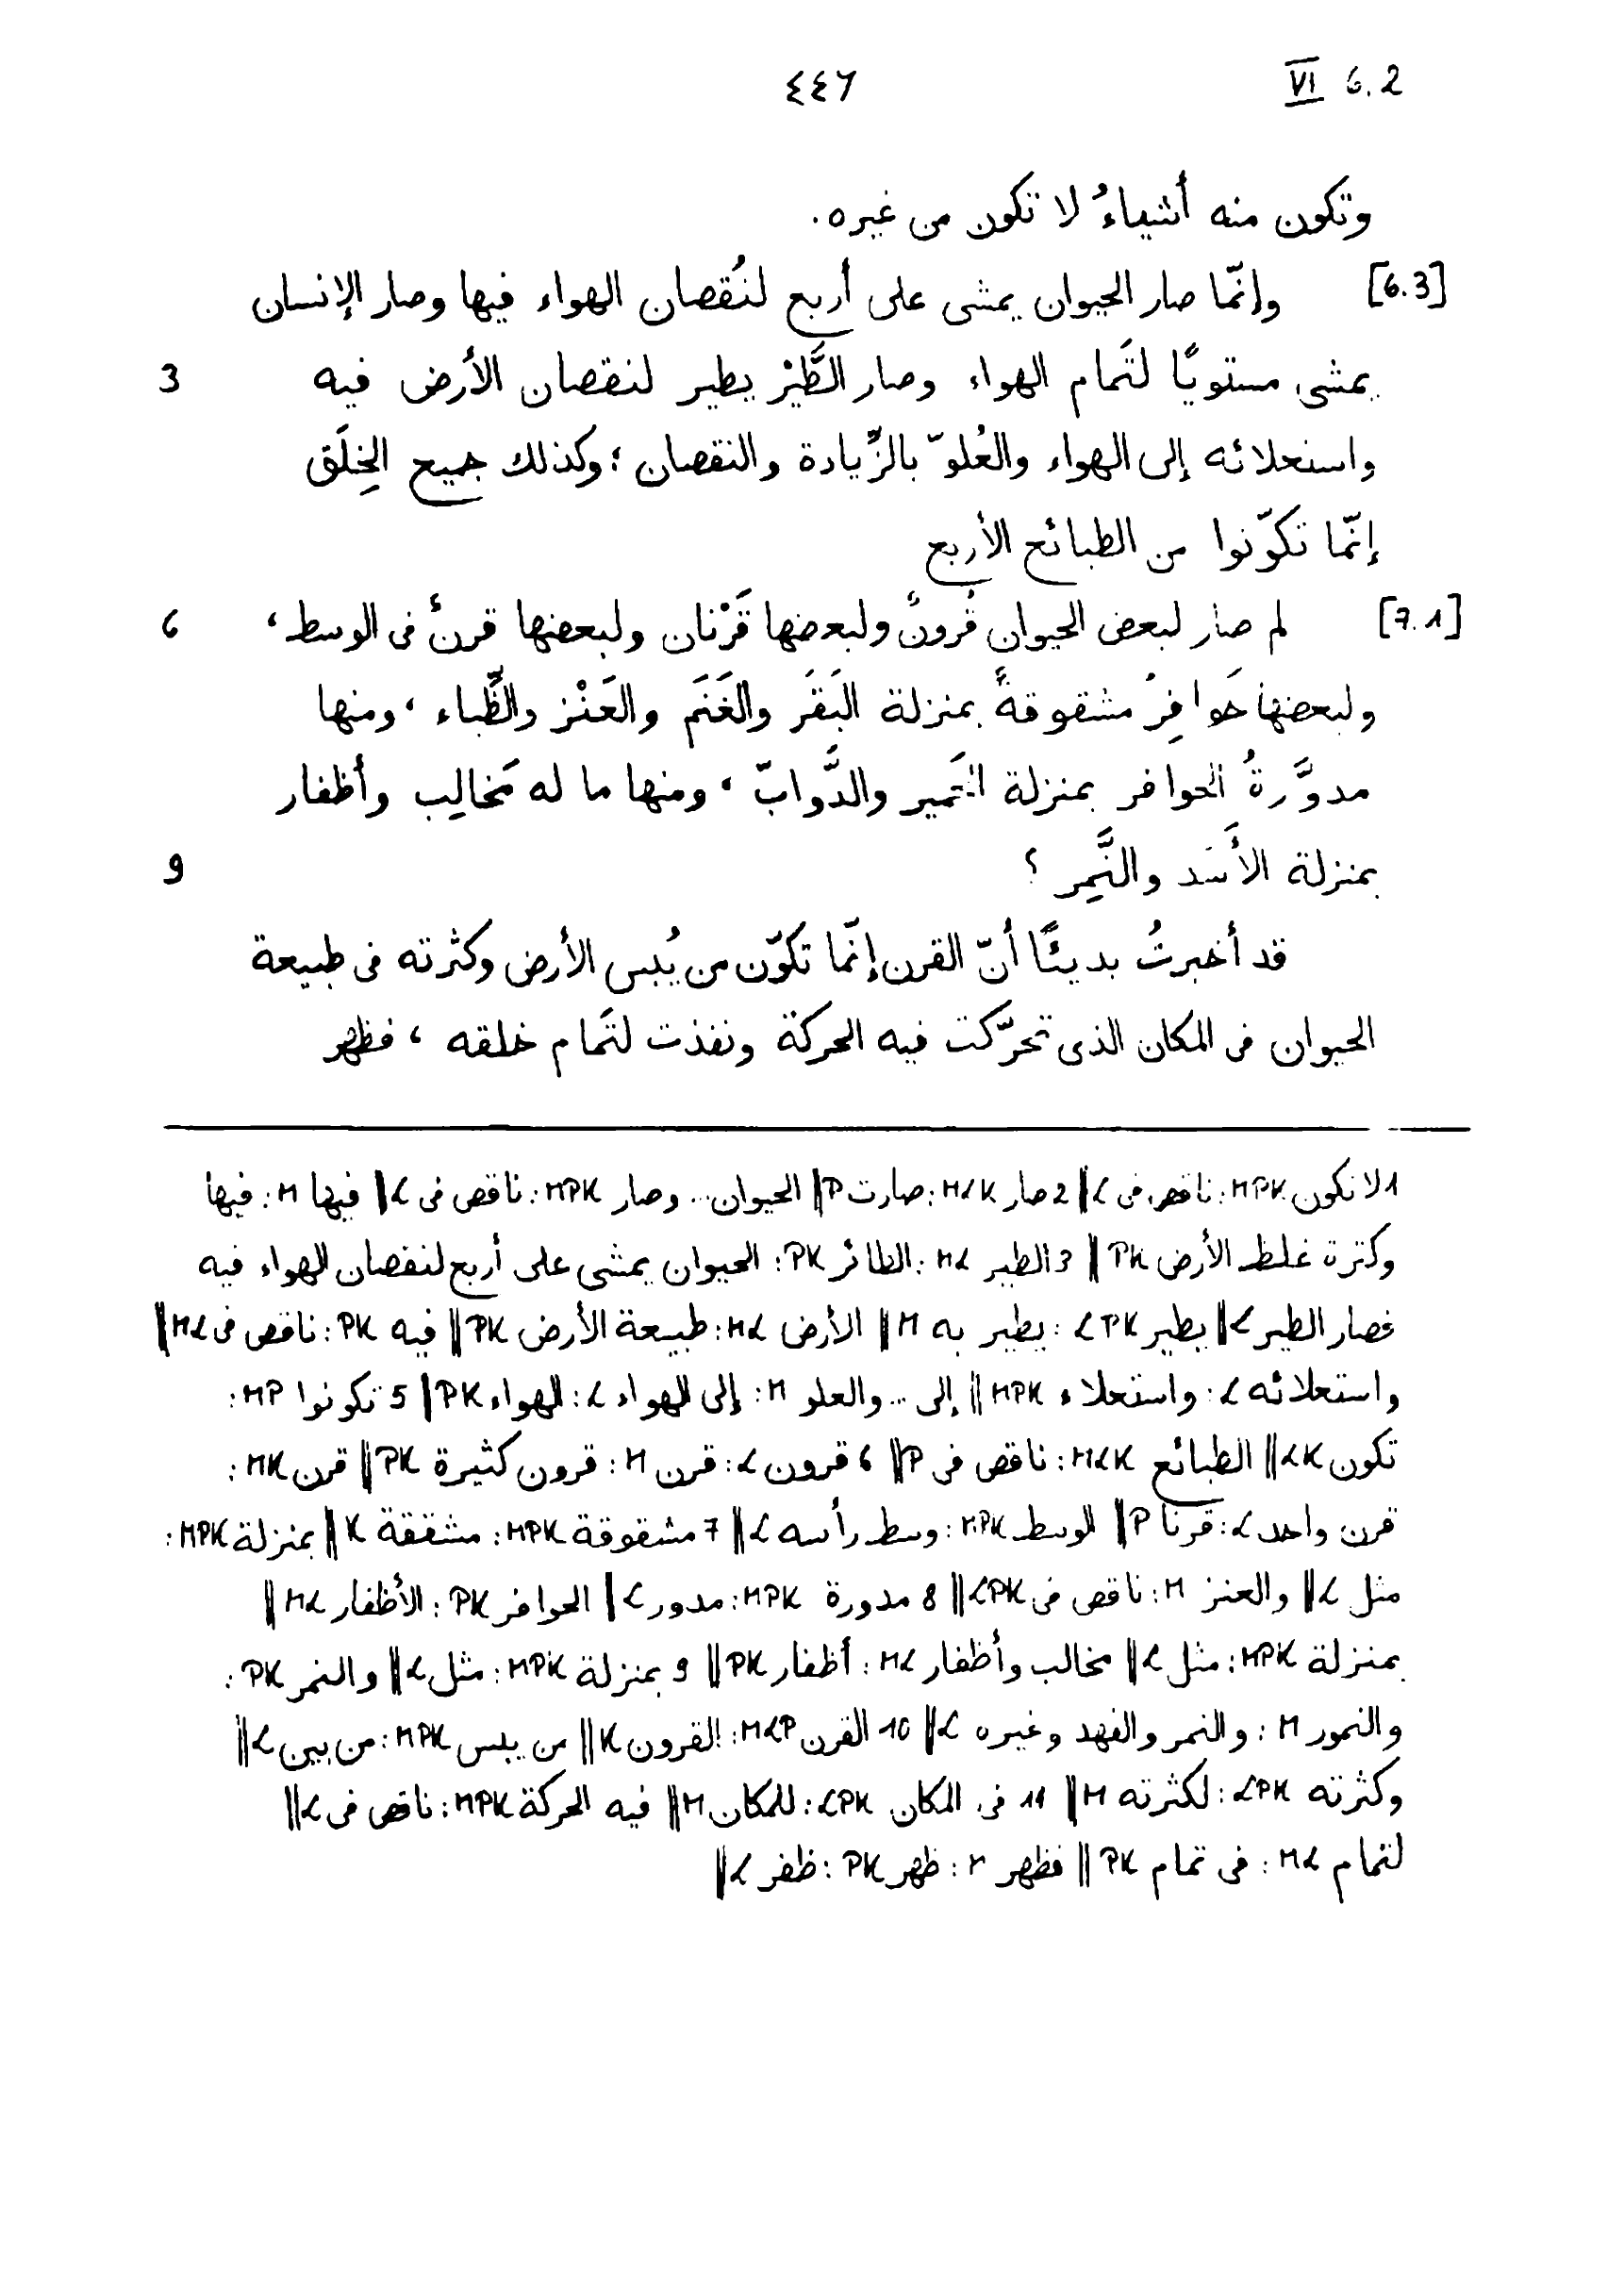 ٤٤٦ VI 6.2
وتكون منه أشياءُ لا تكون من غيره.
[6.3] وإنّما صار الحيوان يمشى على أربع لنُقصان الهواء فيها وصار الإنسان
3 يمشى مستويًا لتَمام الهواء وصار الطَّيْر يطير لنقصان الأرض فيه
واستعلائه إلى الهواء والعُلوّ بالزِّيادة والنقصان؛ وكذلك جميع الخِلَق
إنّما تكوّنوا من الطبائع الأربع
[7.1] 6 لم صار لبعض الحيوان قُرونٌ ولبعضها قَرْنان ولبعضها قرنٌ فى الوسط،
ولبعضها حَوافِرُ مشقوقةً بمنزلة البَقَر والغَنَم والعَنْز والظِّباء، ومنها
مدوَّرةُ الحوافر بمنزلة الحَمير والدَّوابّ، ومنها ما له مَخالِب وأظفار
9 بمنزلة الأَسَد والنَّمِر؟
قد أخبرتُ بديئًا أنّ القرن إنّما تكوّن من يُبس الأرض وكثرته فى طبيعة
الحيوان فى المكان الذى تحرّكت فيه الحركة ونفذت لتَمام خلقه، فظهر
1 لا تكون MPK: ناقص فى L || 2 صار MLK: صارت P || الحيوان... وصار MPK: ناقص فى L || فيها M: فيها
وكثرة غلظ الأرض PK || 3 الطير ML: الطائر PK: الحيوان يمشى على أربع لنقصان الهواء فيه
فصار الطير L || يطير LPK: يطير به M || الأرض ML: طبيعة الأرض PK || فيه PK: ناقص فى ML ||
واستعلائه L: واستعلاء MPK || إلى ... والعلو M: إلى الهواء L: الهواء PK || 5 تكونوا MP:
تكون LK || الطبائع MLK: ناقص فى P || 6 قرون L: قرن M: قرون كثيرة PK || قرن MK:
قرن واحد L: قرنا P || الوسط MPK: وسط رأسه L || 7 مشقوقة MPK: مشققة K || بمنزلة MPK:
مثل L || والعنز M: ناقص فى LPK || 8 مدورة MPK: مدور L || الحوافر PK: الأظفار ML ||
بمنزلة MPK: مثل L || مخالب وأظفار ML: أظفار PK || 9 بمنزلة MPK: مثل L || والنمر PK:
والنمور M: والنمر والفهد وغيره L || 10 القرن MLP: القرون K || من يبس MPK: من بين L ||
وكثرته LPK: لكثرته M || 11 فى المكان LPK: للمكان M || فيه الحركة MPK: ناقص فى L ||
لتمام ML: فى تمام PK || فظهر M: ظهر PK: ظفر L ||